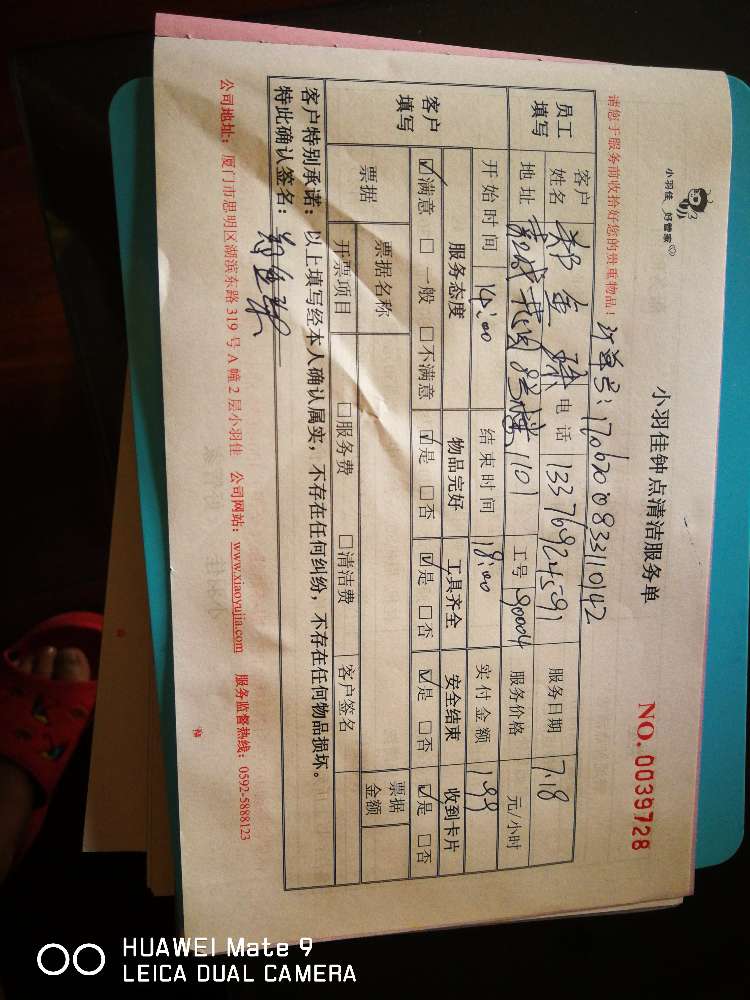 小羽佳 好管家
小羽佳钟点清洁服务单
NO. 0039728
请您于服务前收拾好您的贵重物品!
订单号: 170620083311042
员工填写 客户姓名 郑金 电话 13376924591 服务日期 7.18
地址 1101 工号 90004 服务价格 元/小时
开始时间 14:00 结束时间 18:00 实付金额 199
客户填写 服务态度 物品完好 工具齐全 安全结束 收到卡片
☑满意 □一般 □不满意 ☑是 □否 ☑是 □否 ☑是 □否 ☑是 □否
票据 票据名称 □服务费 □清洁费 客户签名 票据金额
开票项目
客户特别承诺: 以上填写经本人确认属实, 不存在任何纠纷, 不存在任何物品损坏。
特此确认签名:
公司地址: 厦门市思明区湖滨东路 319 号 A 幢 2 层小羽佳 公司网站: www.xiaoyujia.com 服务监督热线: 0592-5888123
HUAWEI Mate 9
LEICA DUAL CAMERA